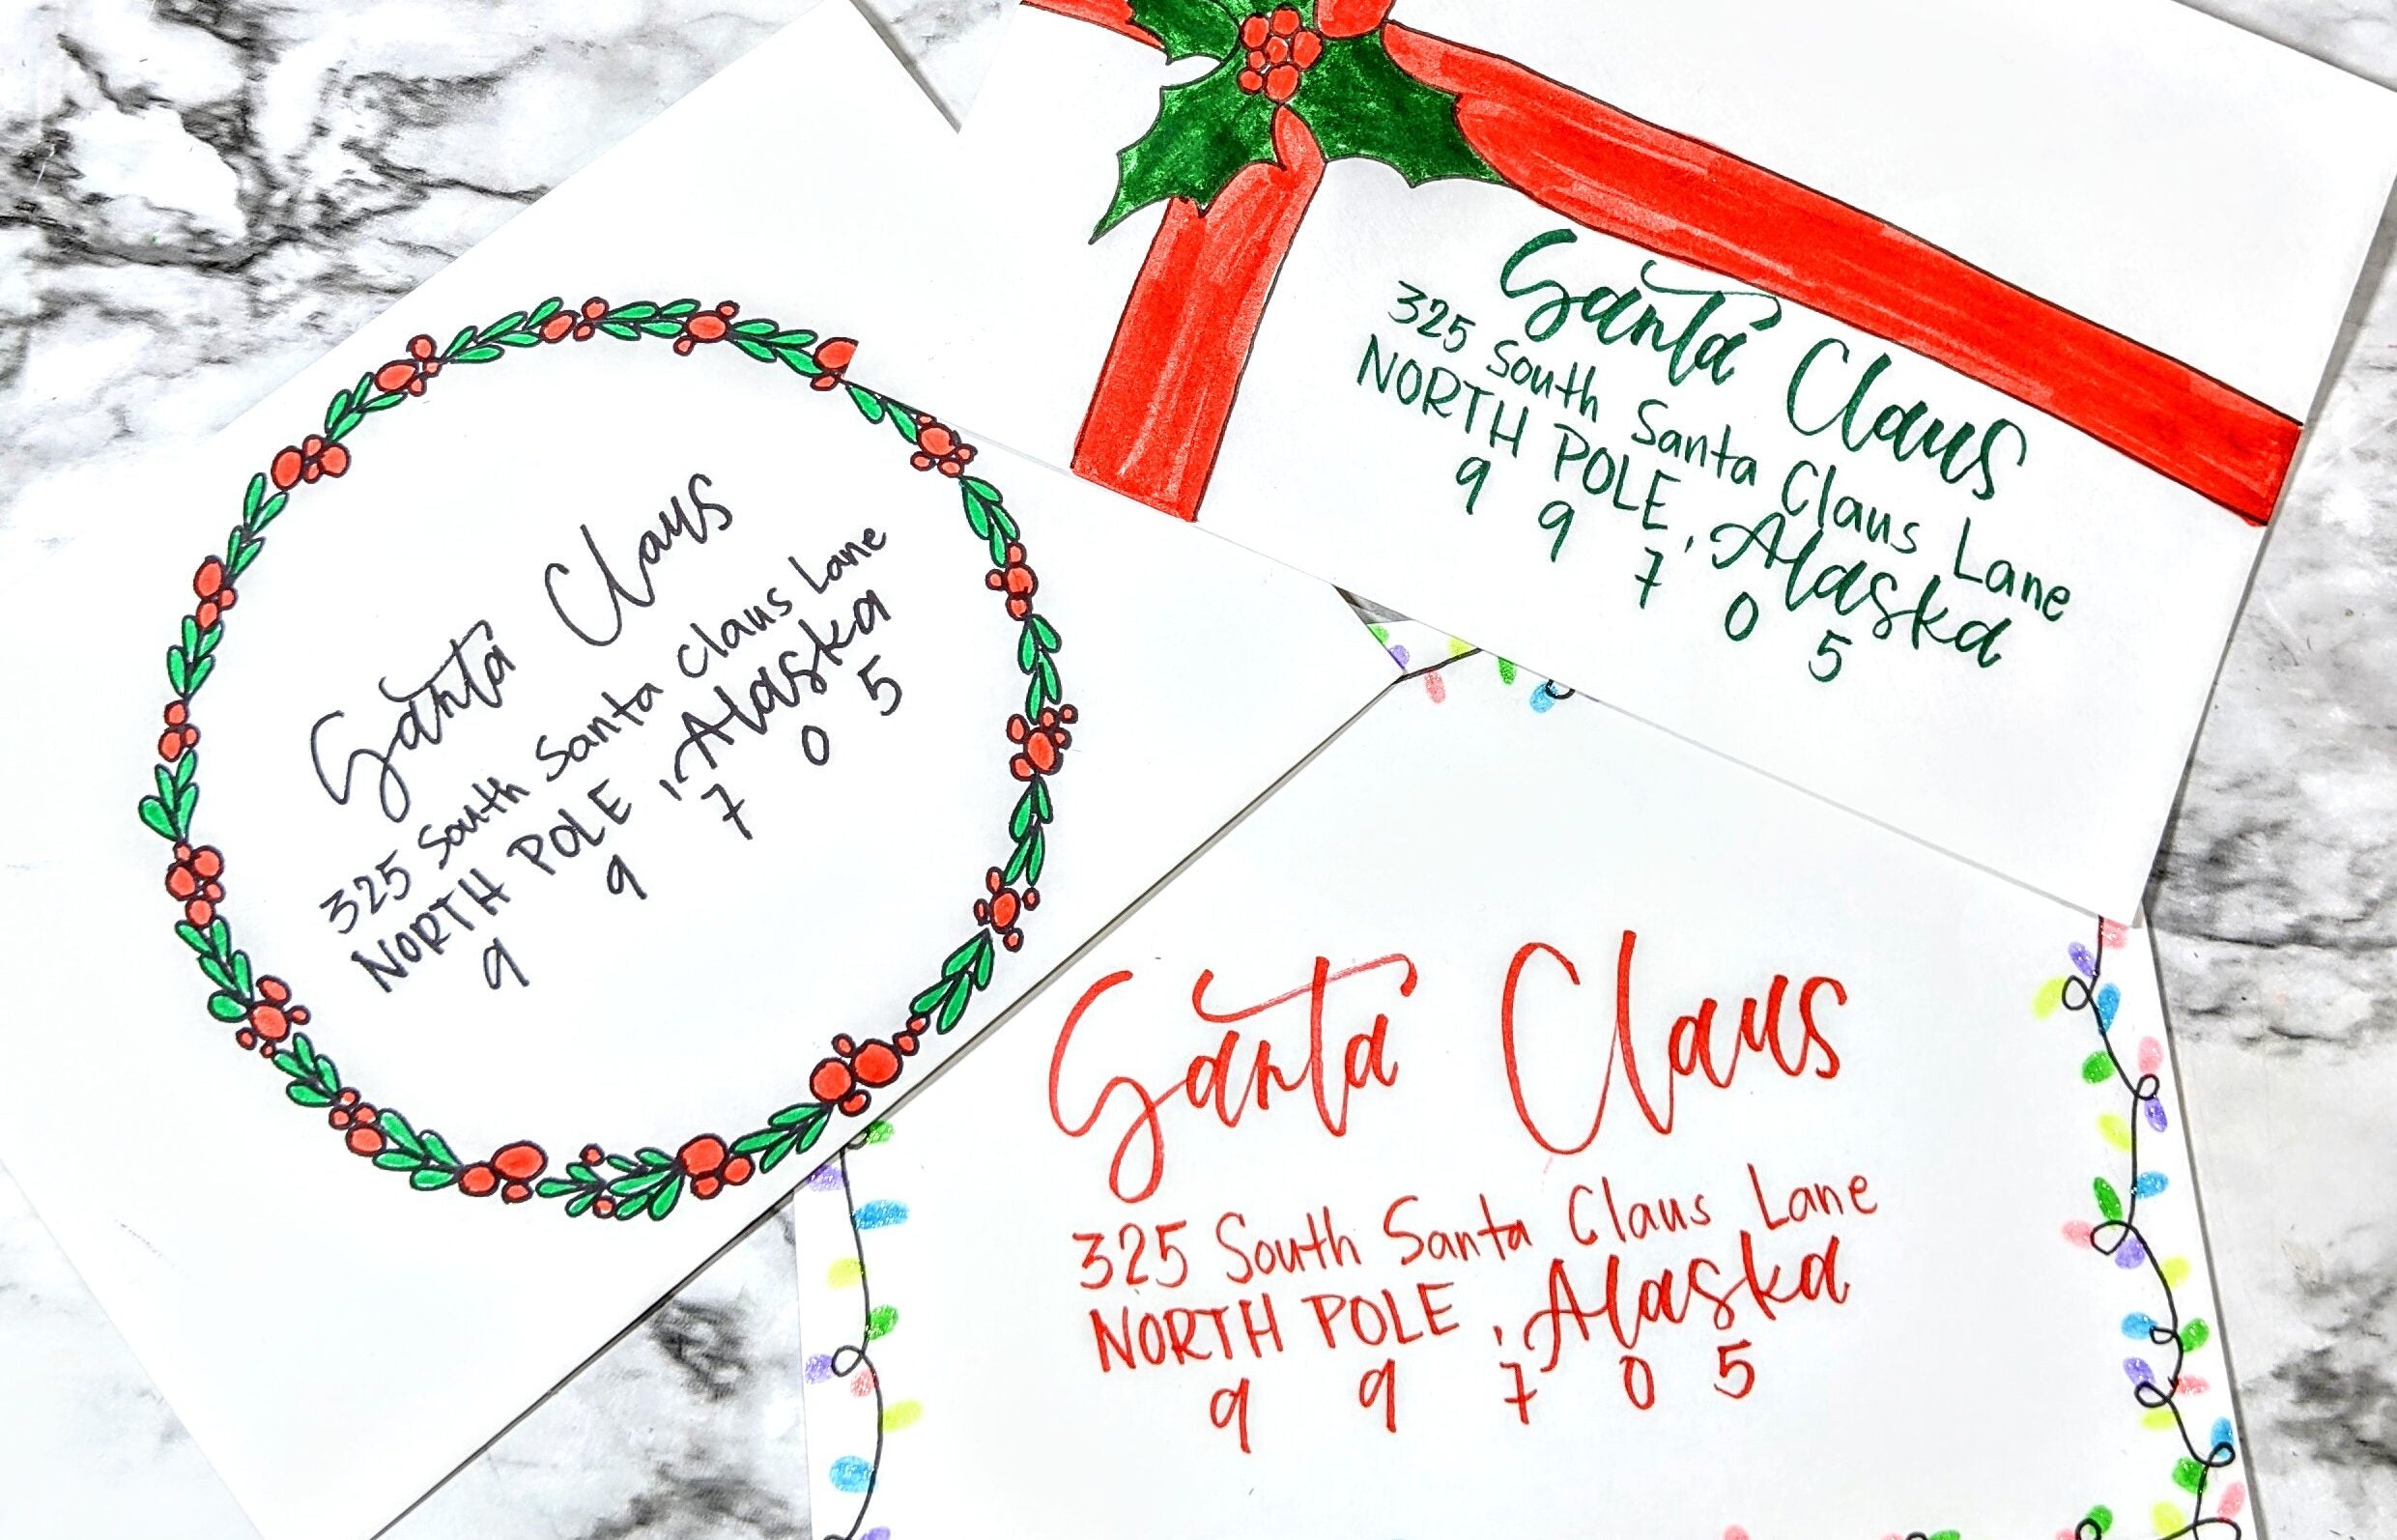 Santa Claus
325 South Santa Claus Lane
NORTH POLE, Alaska
9 9 7 0 5
Santa Claus
325 South Santa Claus Lane
NORTH POLE, Alaska
9 9 7 0 5
Santa Claus
325 South Santa Claus Lane
NORTH POLE, Alaska
9 9 7 0 5